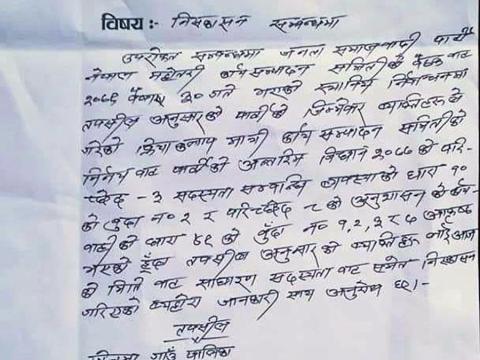 विषय :- निस्कासन सम्बन्धमा
उपरोक्त सम्बन्धमा जनता समाजवादी पार्टी
नेपाल महोत्तरी कार्य सम्पादन समितिको बैठक बाट
२०७९ बैशाख ३० गते भएको स्थानिय निर्वाचनमा
तपसील अनुसारको पार्टीको जिम्मेवार व्यक्तिहरुले
गरेको क्रियाकलाप कार्य सम्पादन समितिको
निर्णय बाट पार्टीको अन्तरिम विधान २०७७ को परि-
च्छेद - ३ सदस्यता सम्बन्धि व्यवस्थाको धारा १०
को बुदा न० २ र परिच्छेद ८ को अनुशासन को
को धारा ४९ को बुँदा न० १, २, ३ र ५
भएको हुँदा तपसील अनुसारको व्यक्तिहरु लाई आज
को मिति बाट साधारण सदस्यता बाट समेत निस्कासन
गरिएको व्यहोरा जानकारी साथ अनुरोध छ।-
तपसील
गाउँ पालिका